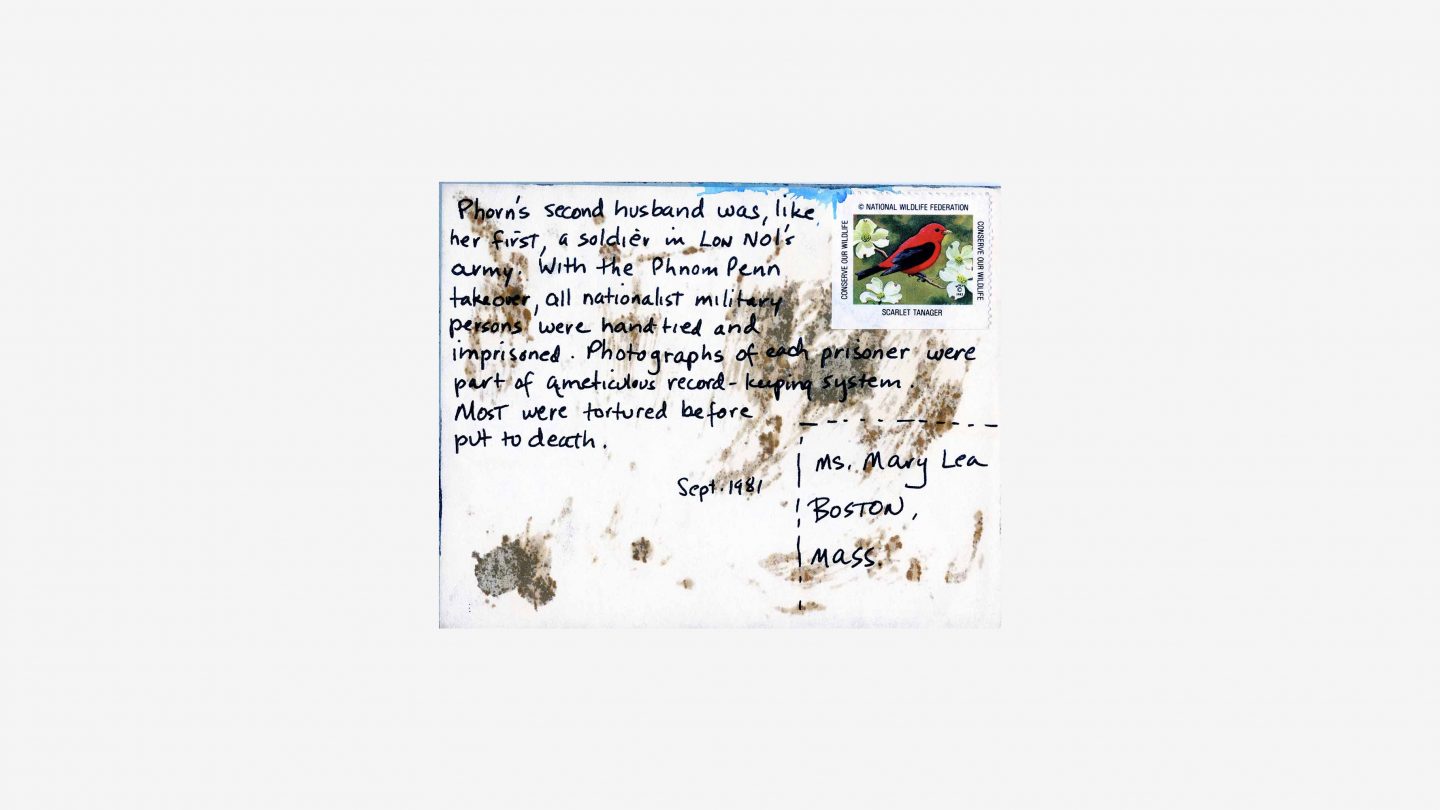 Phorn's second husband was, like
her first, a soldier in Lon Nol's
army. With the Phnom Penn
takeover, all nationalist military
persons were hand-tied and
imprisoned. Photographs of each prisoner were
part of a meticulous record-keeping system.
Most were tortured before
put to death.
Sept. 1981
© NATIONAL WILDLIFE FEDERATION
CONSERVE OUR WILDLIFE
CONSERVE OUR WILDLIFE
SCARLET TANAGER
Ms. Mary Lea
BOSTON,
Mass.